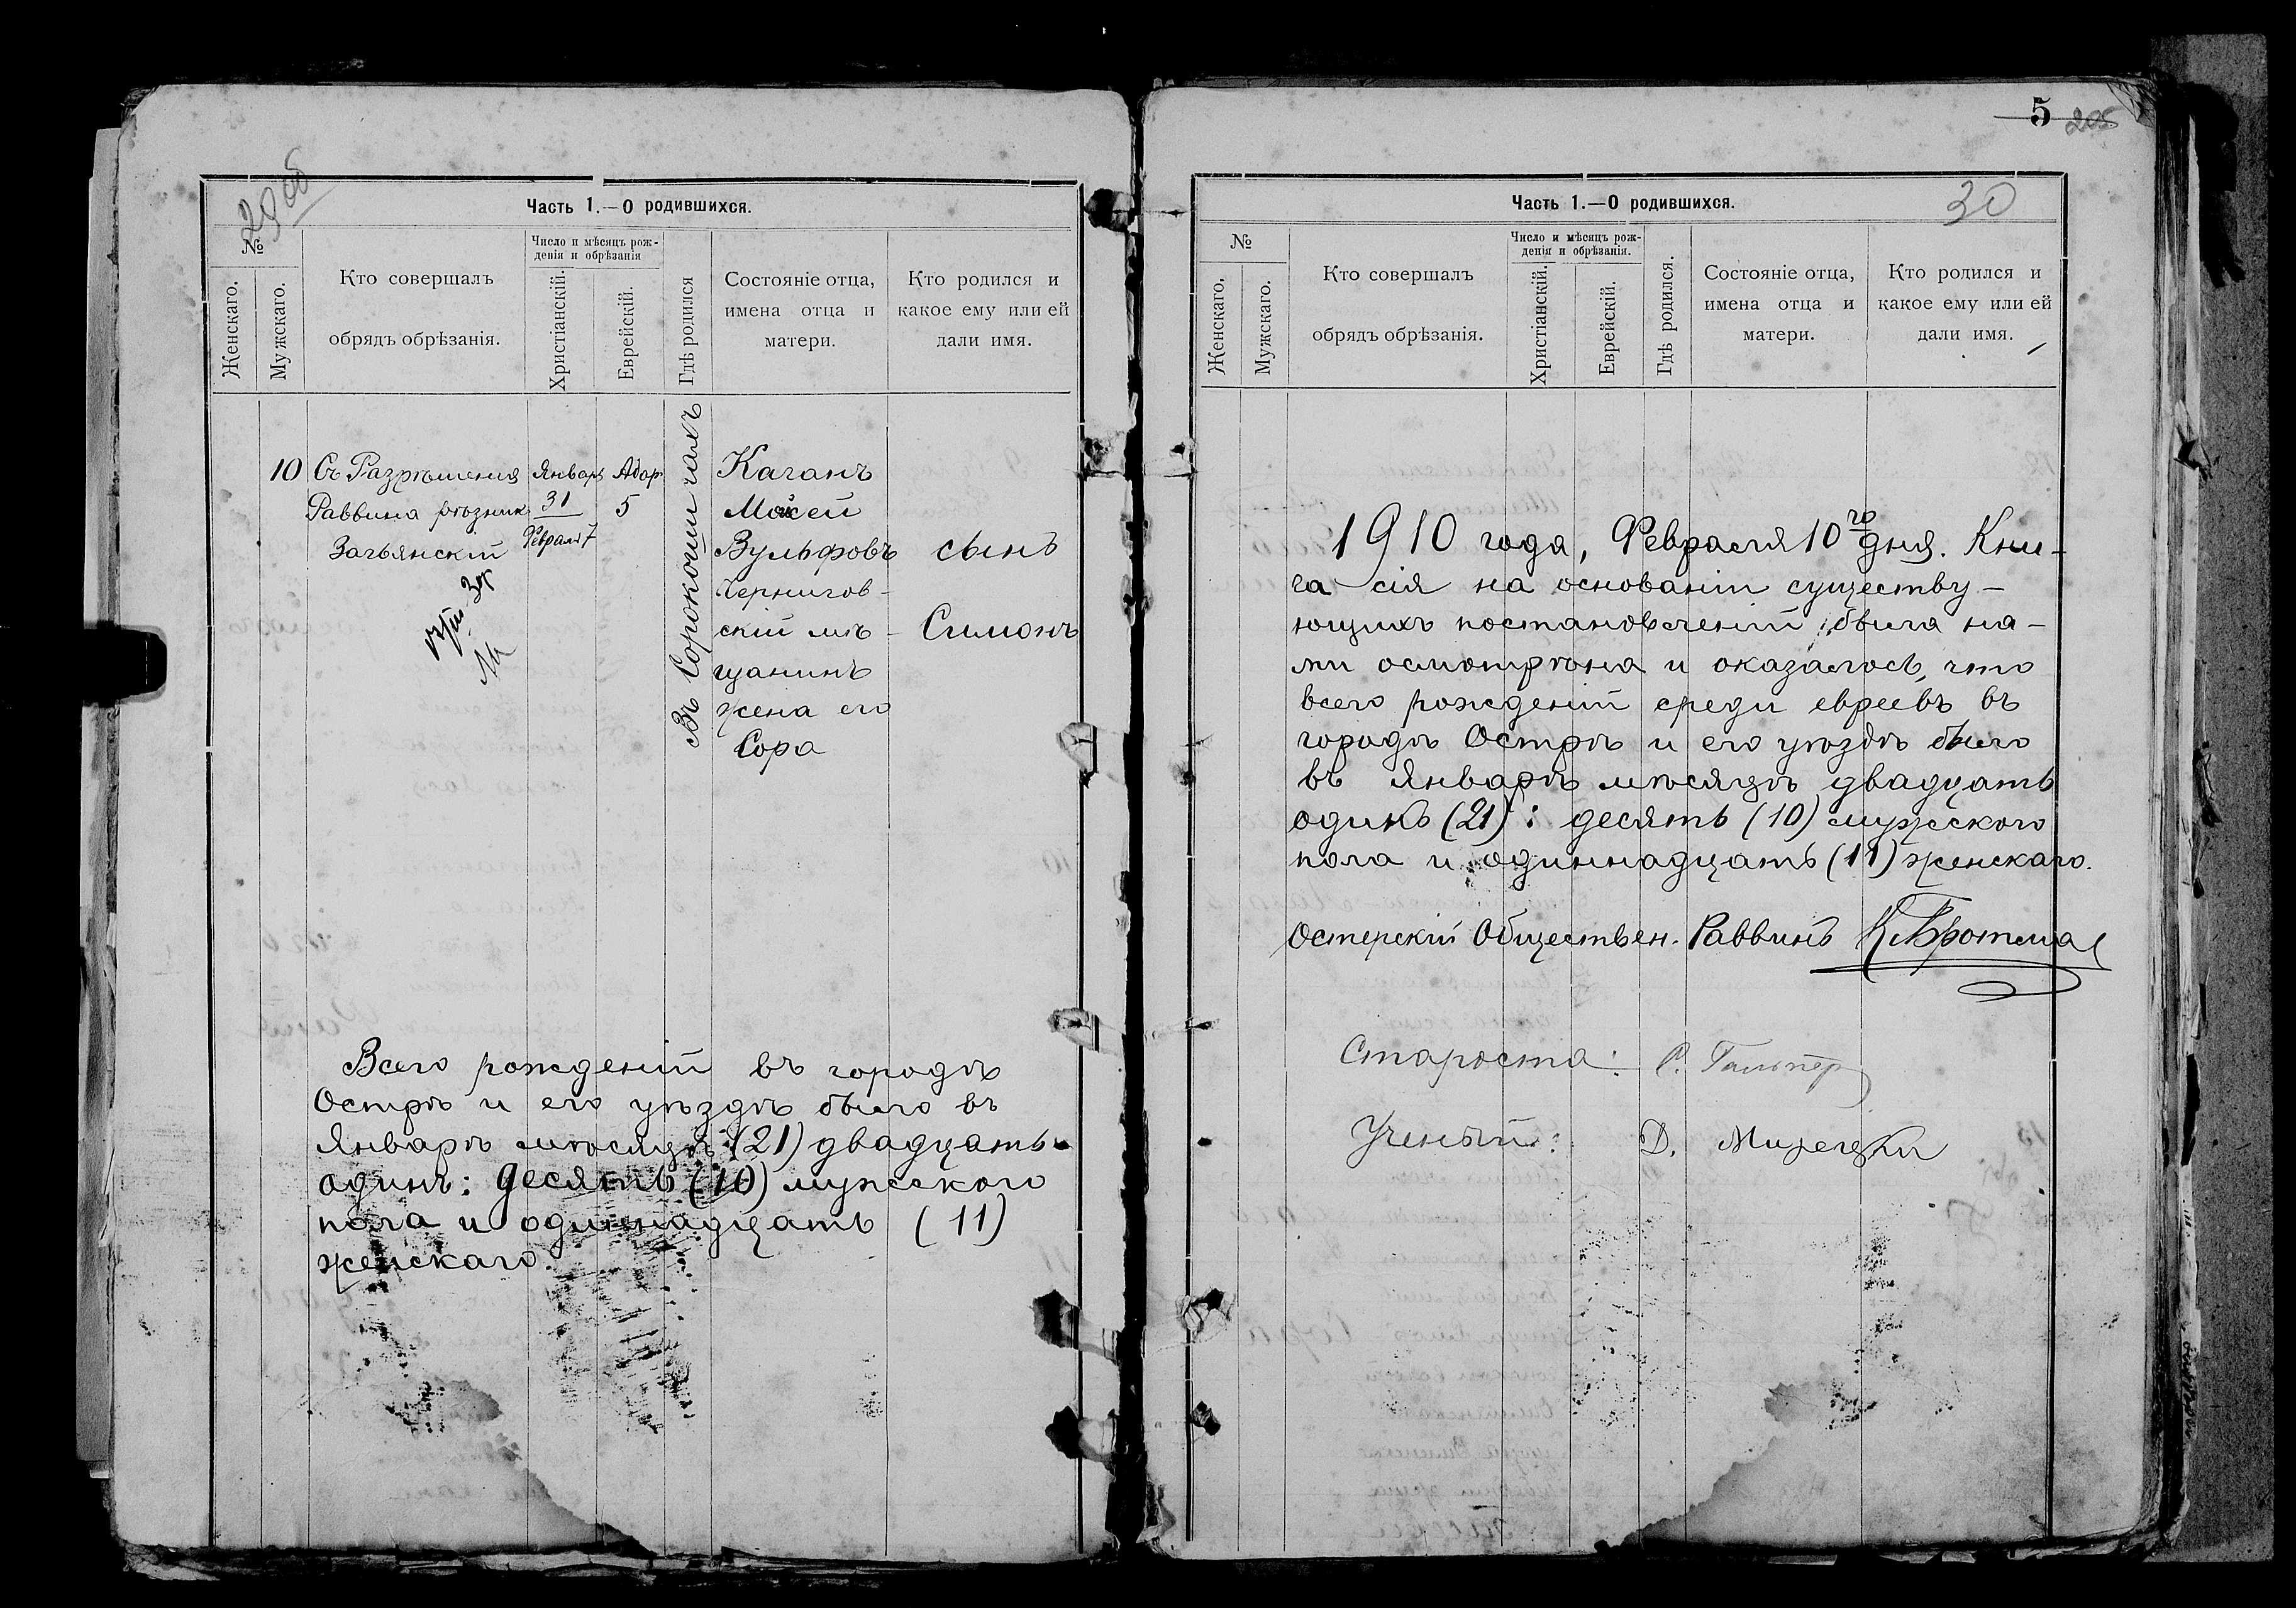 29 об
Часть 1.—О родившихся.
№
Женскаго.
Мужскаго.
Кто совершалъ
обрядъ обрѣзанія.
Число и мѣсяцъ рож-
денія и обрѣзанія
Христіанскій.
Еврейскій.
Гдѣ родился
Состояніе отца,
имена отца и
матери.
Кто родился и
какое ему или ей
дали имя.
10
Съ Разрѣшения
Раввина рѣзник
Январь
31
Февраля 7
Адар
5
Въ Сорокошичахъ
Каганъ
Мойсей
Вульфовъ
Чернигов-
скій мѣ-
щанинъ
жена его
Сора
сынъ
Симонъ
Всего рожденій въ городѣ
Острѣ и его уѣздѣ было въ
Январѣ мѣсяцѣ (21) двадцать
одинъ: десять (10) мужского
пола и одиннадцать (11)
женскаго.
5
205
30
Часть 1.—О родившихся.
№
Женскаго.
Мужскаго.
Кто совершалъ
обрядъ обрѣзанія.
Число и мѣсяцъ рож-
денія и обрѣзанія.
Христіанскій.
Еврейскій.
Гдѣ родился.
Состояніе отца,
имена отца и
матери.
Кто родился и
какое ему или ей
дали имя.
1910 года, Февраля 10го дня. Кни-
га сія на основаніи существу-
ющихъ постановленій была на-
ми осмотрѣна и оказалось, что
всего рожденій среди евреевъ въ
городѣ Острѣ и его уѣздѣ было
въ Январѣ мѣсяцѣ двадцать
одинъ (21): десять (10) мужского
пола и одиннадцать (11) женскаго.
Остерскій Обществен. Раввинъ
Староста: Гальпер
Ученый: Д.